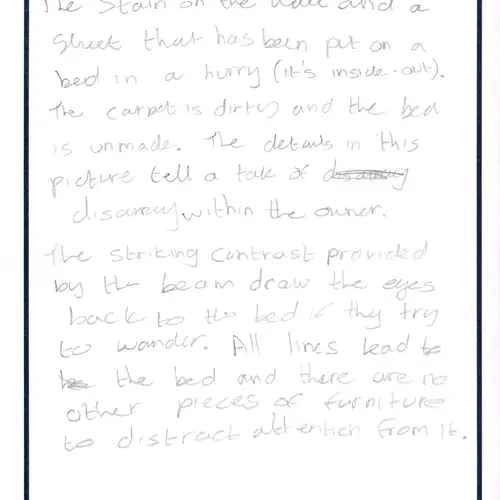 The stain on the wall and a
sheet that has been put on a
bed in a hurry (it's inside-out).
The carpet is dirty and the bed
is unmade. The details in this
picture tell a tale of
disarray within the owner.
The striking contrast provided
by the beam draw the eyes
back to the bed if they try
to wander. All lines lead to
the bed and there are no
other pieces of furniture
to distract attention from it.